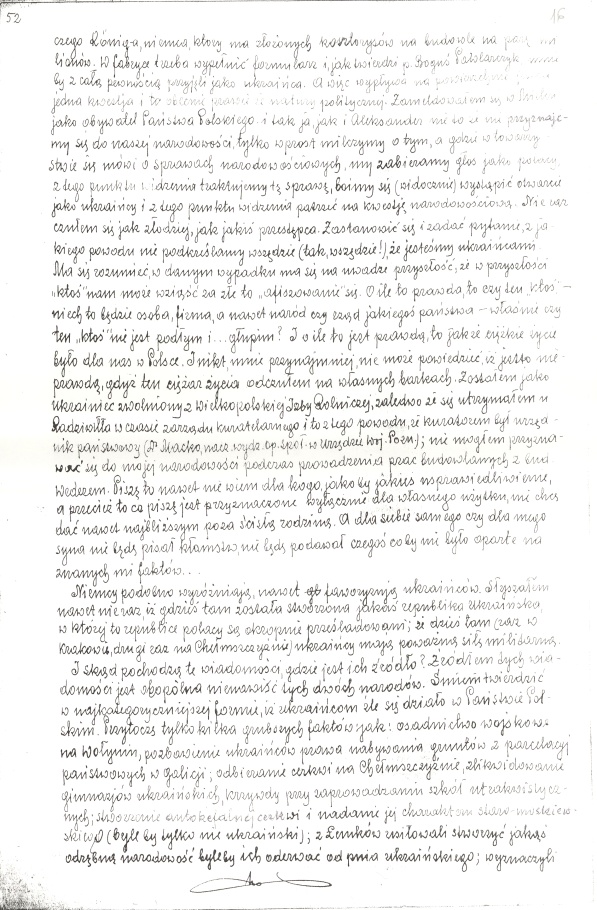 52
16
czego Königa, niemca, który ma złożonych kosztorysów na budowle na parę mi
lionów. W fabryce trzeba wypełnić formularz i, jak twierdzi p. Bogus
by z całą pewnością przyjęli jako ukraińca. A więc wypływa na powierzchnię
jedna kwestja i to obecnie prawie że natury politycznej. Zameldowałem się w
jako obywatel Państwa Polskiego i tak ja, jak i Aleksander nie to że nie przyznaje-
my się do naszej narodowości, tylko wprost milczymy o tym, a gdzie w towarzy-
stwie się mówi o sprawach narodowościowych, my zabieramy głos jako polacy,
z tego punktu widzenia traktujemy tę sprawę, boimy się (widocznie) wystąpić otwarcie
jako ukraińcy i z tego punktu widzenia patrzeć na kwestję narodowościową. Nie raz
czułem się jak złodziej, jak jakiś przestępca. Zastanowić się i zadać pytanie, z ja-
kiego powodu nie podkreślamy wszędzie (tak, wszędzie!), że jesteśmy ukraińcami.
Ma się rozumieć, w danym wypadku ma się na uwadze przyszłość, że w przyszłości
„ktoś" nam może wziąść za złe to „afiszowanie" się. O ile to prawda, to czy ten „ktoś" –
niech to będzie osoba, firma, a nawet naród czy rząd jakiegoś państwa – właśnie czy
ten „ktoś" nie jest podłym i... głupim? I o ile to jest prawdą, to jakże ciężkie życie
było dla nas w Polsce. I nikt, mnie przynajmniej, nie może powiedzieć, iż jest to nie-
prawdą, gdyż ten ciężar życia odczułem na własnych barkach. Zostałem jako
ukrainiec zwolniony z Wielkopolskiej Izby Rolniczej, zaledwo że się utrzymałem u
Radziwiłła w czasie zarządu kuratelarnego i to z tego powodu, że kuratorem był urzęd-
nik państwowy (Dr Macko, nacz. wydz. op. społ. w Urzędzie Woj. Pozn.); nie mogłem przyzna-
wać się do mojej narodowości podczas prowadzenia prac budowlanych z bud.
Wederem. Piszę to nawet nie wiem dla kogo, jako by jakieś usprawiedliwienie,
a przecież to co piszę jest przeznaczone wyłącznie dla własnego użytku, nie chcę
dać nawet najbliższym poza ścisłą rodziną. A dla siebie samego czy dla mego
syna nie będę pisał kłamstw, nie będę podawał czegoś co by nie było oparte na
znanych mi faktów...
Niemcy podobno wyróżniają, nawet faworyzują ukraińców. Słyszałem
nawet nie raz iż gdzieś tam została stworzona jakaś republika ukraińska,
w której to republice polacy są okropnie prześladowani; że dzieś tam (raz w
Krakowie, drugi raz na Chełmszczyźnie) ukraińcy mają poważną siłę militarną.
I skąd pochodzą te wiadomości, gdzie jest ich źródło? Źródłem tych wia-
domości jest obopólna nienawiść tych dwóch narodów. Śmiem twierdzić
w najkategoryczniejszej formie, iż ukraińcom źle się działo w Państwie Pol-
skim. Przytoczę tylko kilka grubszych faktów jak: osadnictwo wojskowe
na Wołyniu, pozbawienie ukraińców prawa nabywania gruntów z parcelacyj
państwowych w Galicji; odbieranie cerkwi na Chełmszczyźnie, zlikwidowanie
gimnazjów ukraińskich, krzywdy przy zaprowadzaniu szkół utrakwistycz-
nych; stworzenie autokefalnej cerkwi i nadanie jej charakteru staro-moskiew-
skiego (byle by tylko nie ukraiński); z Łemków usiłowali stworzyć jakąś
odrębną narodowość byleby ich oderwać od pnia ukraińskiego; wyznaczyli